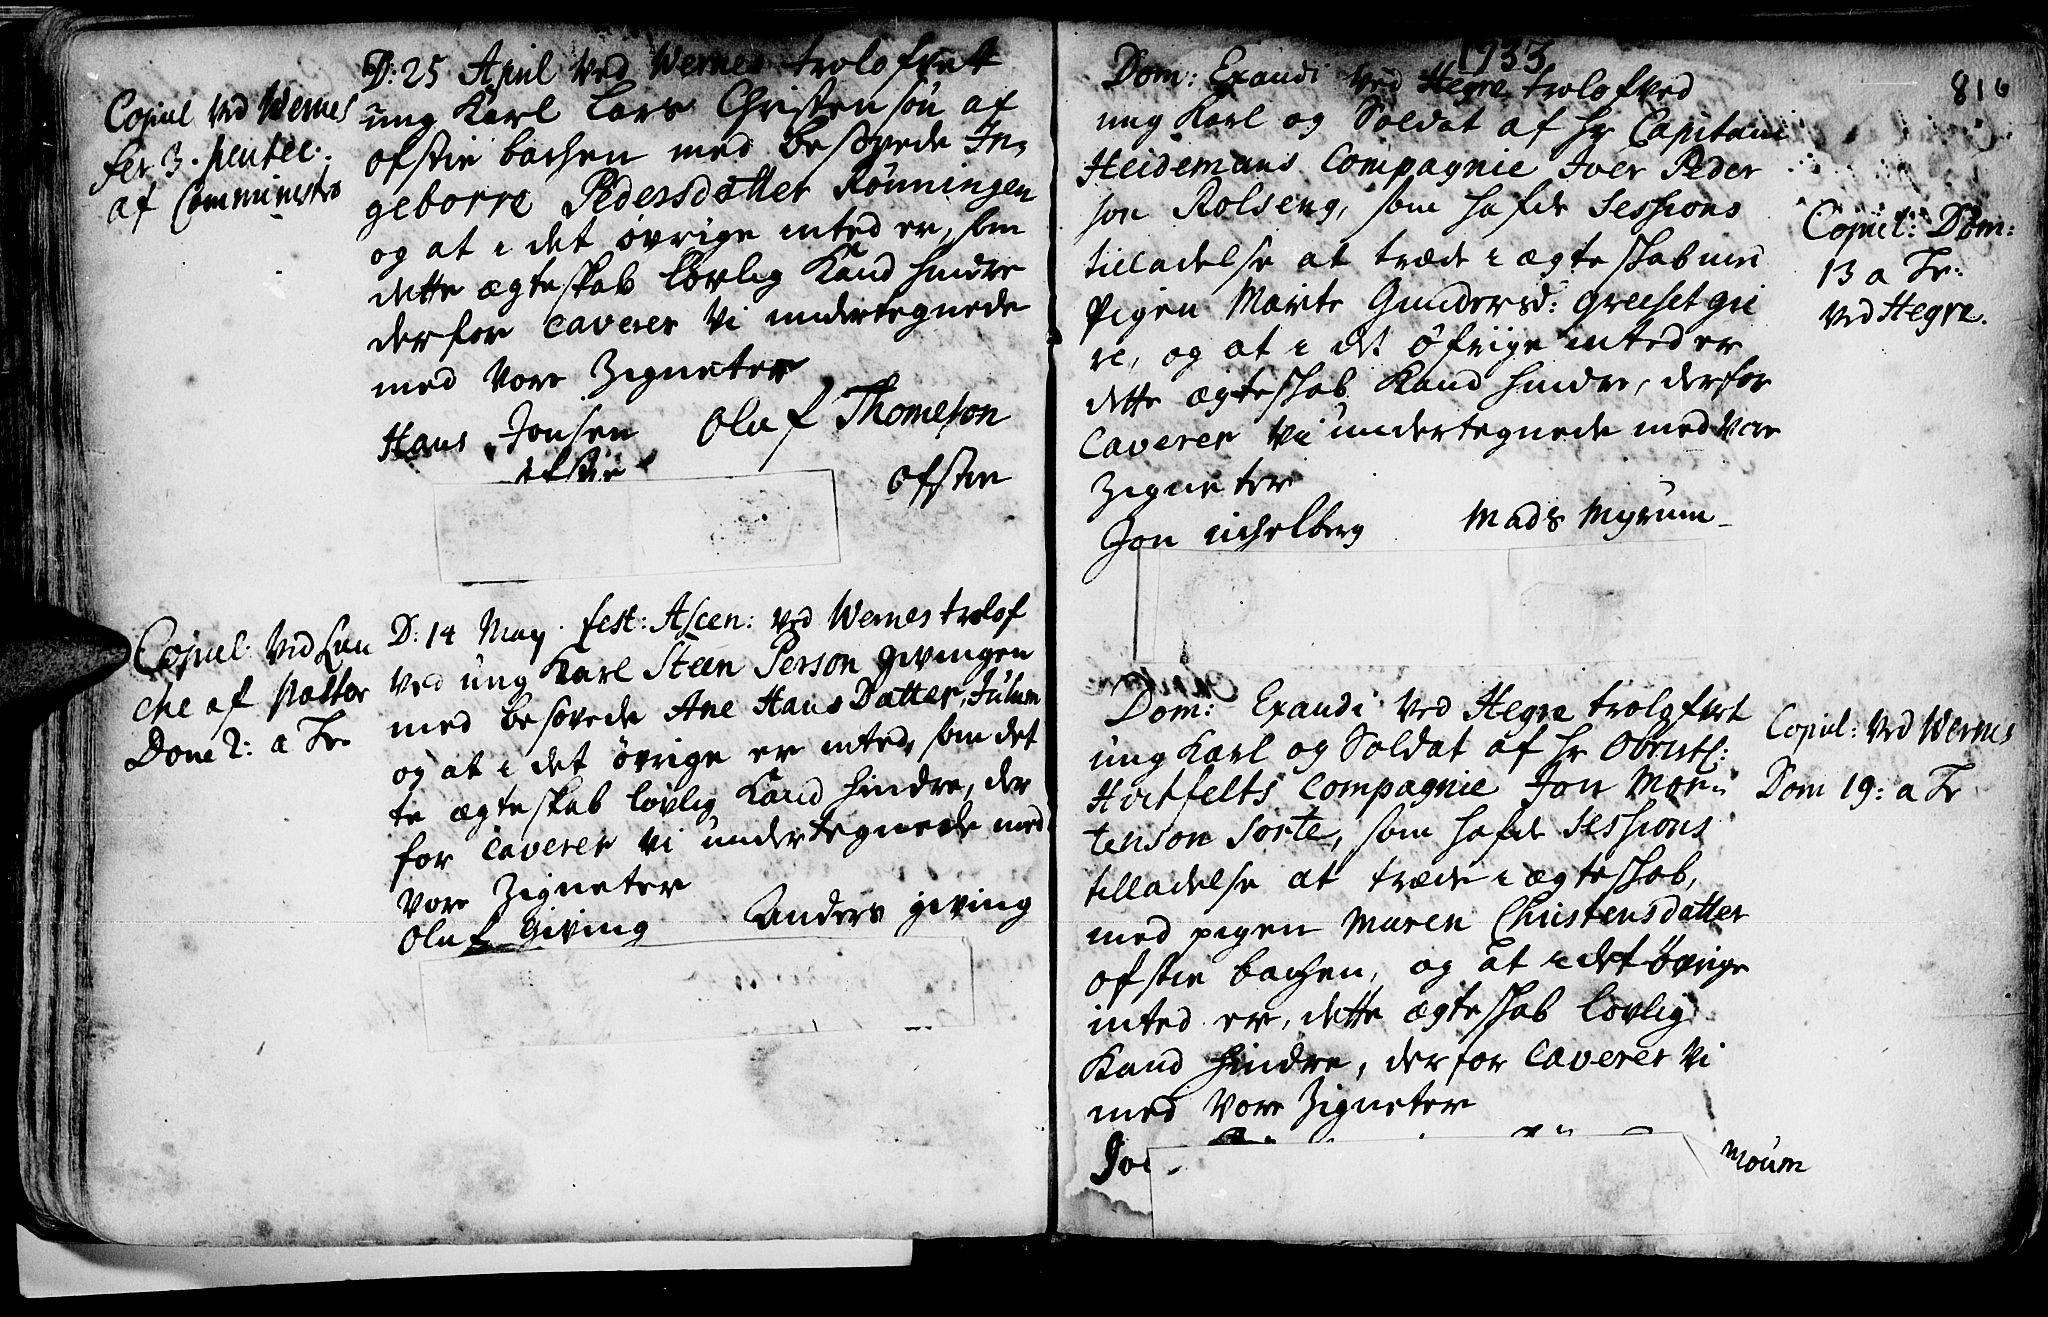 Copul ved Wernes
fer 3. pentec:
af Comministro
D: 25 April ved Wernes trolofvet
ung Karl Lars Christensøn af
ofstie bachen med besovede In-
geborre Pedersdatter Rønningen
og at i det øvrige inted er, som
dette ægteskab lovlig Kand hindre
derfor caverer vi undertegnede
med vore Zigneter
Hans Jonsen Oluf Thomeson
ofstie ofstie
Copul. ved Lan
che af Pastor
Dom 2: a Tr.
D: 14 May fest: Ascen: ved Wernes trolof
ved ung Karl Steen Person givingen
med besovede Ane Hans Datter Julum
og at i det øvrige er inted, som det
te ægteskab lovlig Kand hindre, der
for caverer vi undertegnede med
vore Zigneter
Oluf giving Anders giving
1733
816
Dom: Exaudi ved Hegre trolofved
ung Karl og Soldat af hr Capitain
Heidemans Compagnie Iver Peder
son Rolseng, som hafde Sessions
tilladelse at træde i ægteskab med
Pigen Marte Gundersd: greeset gie
re, og at i det öfrige inted er
dette ægteskab Kand hindre, derfor
Caverer vii undertegnede med vore
Zigneter
Jon Mads Myrum
Copul: Dom:
13 a Tr:
ved Hegre.
Dom: Exaudi ved Hegre trolofvet
ung Karl og Soldat af hr Obristl:
Hvitfelts Compagnie Jon Mor-
tenson Sorte, som hafde Sessions
tilladelse at træde i ægteskab,
med pigen Maren Christensdatter
ofstie bachen, og at i det øvrige
inted er, dette ægteskab lovlig
Kand hindre, derfor Caverer vi
med vore Zigneter
Mourn
Copul: ved Wernes
Dom 19: a Tr